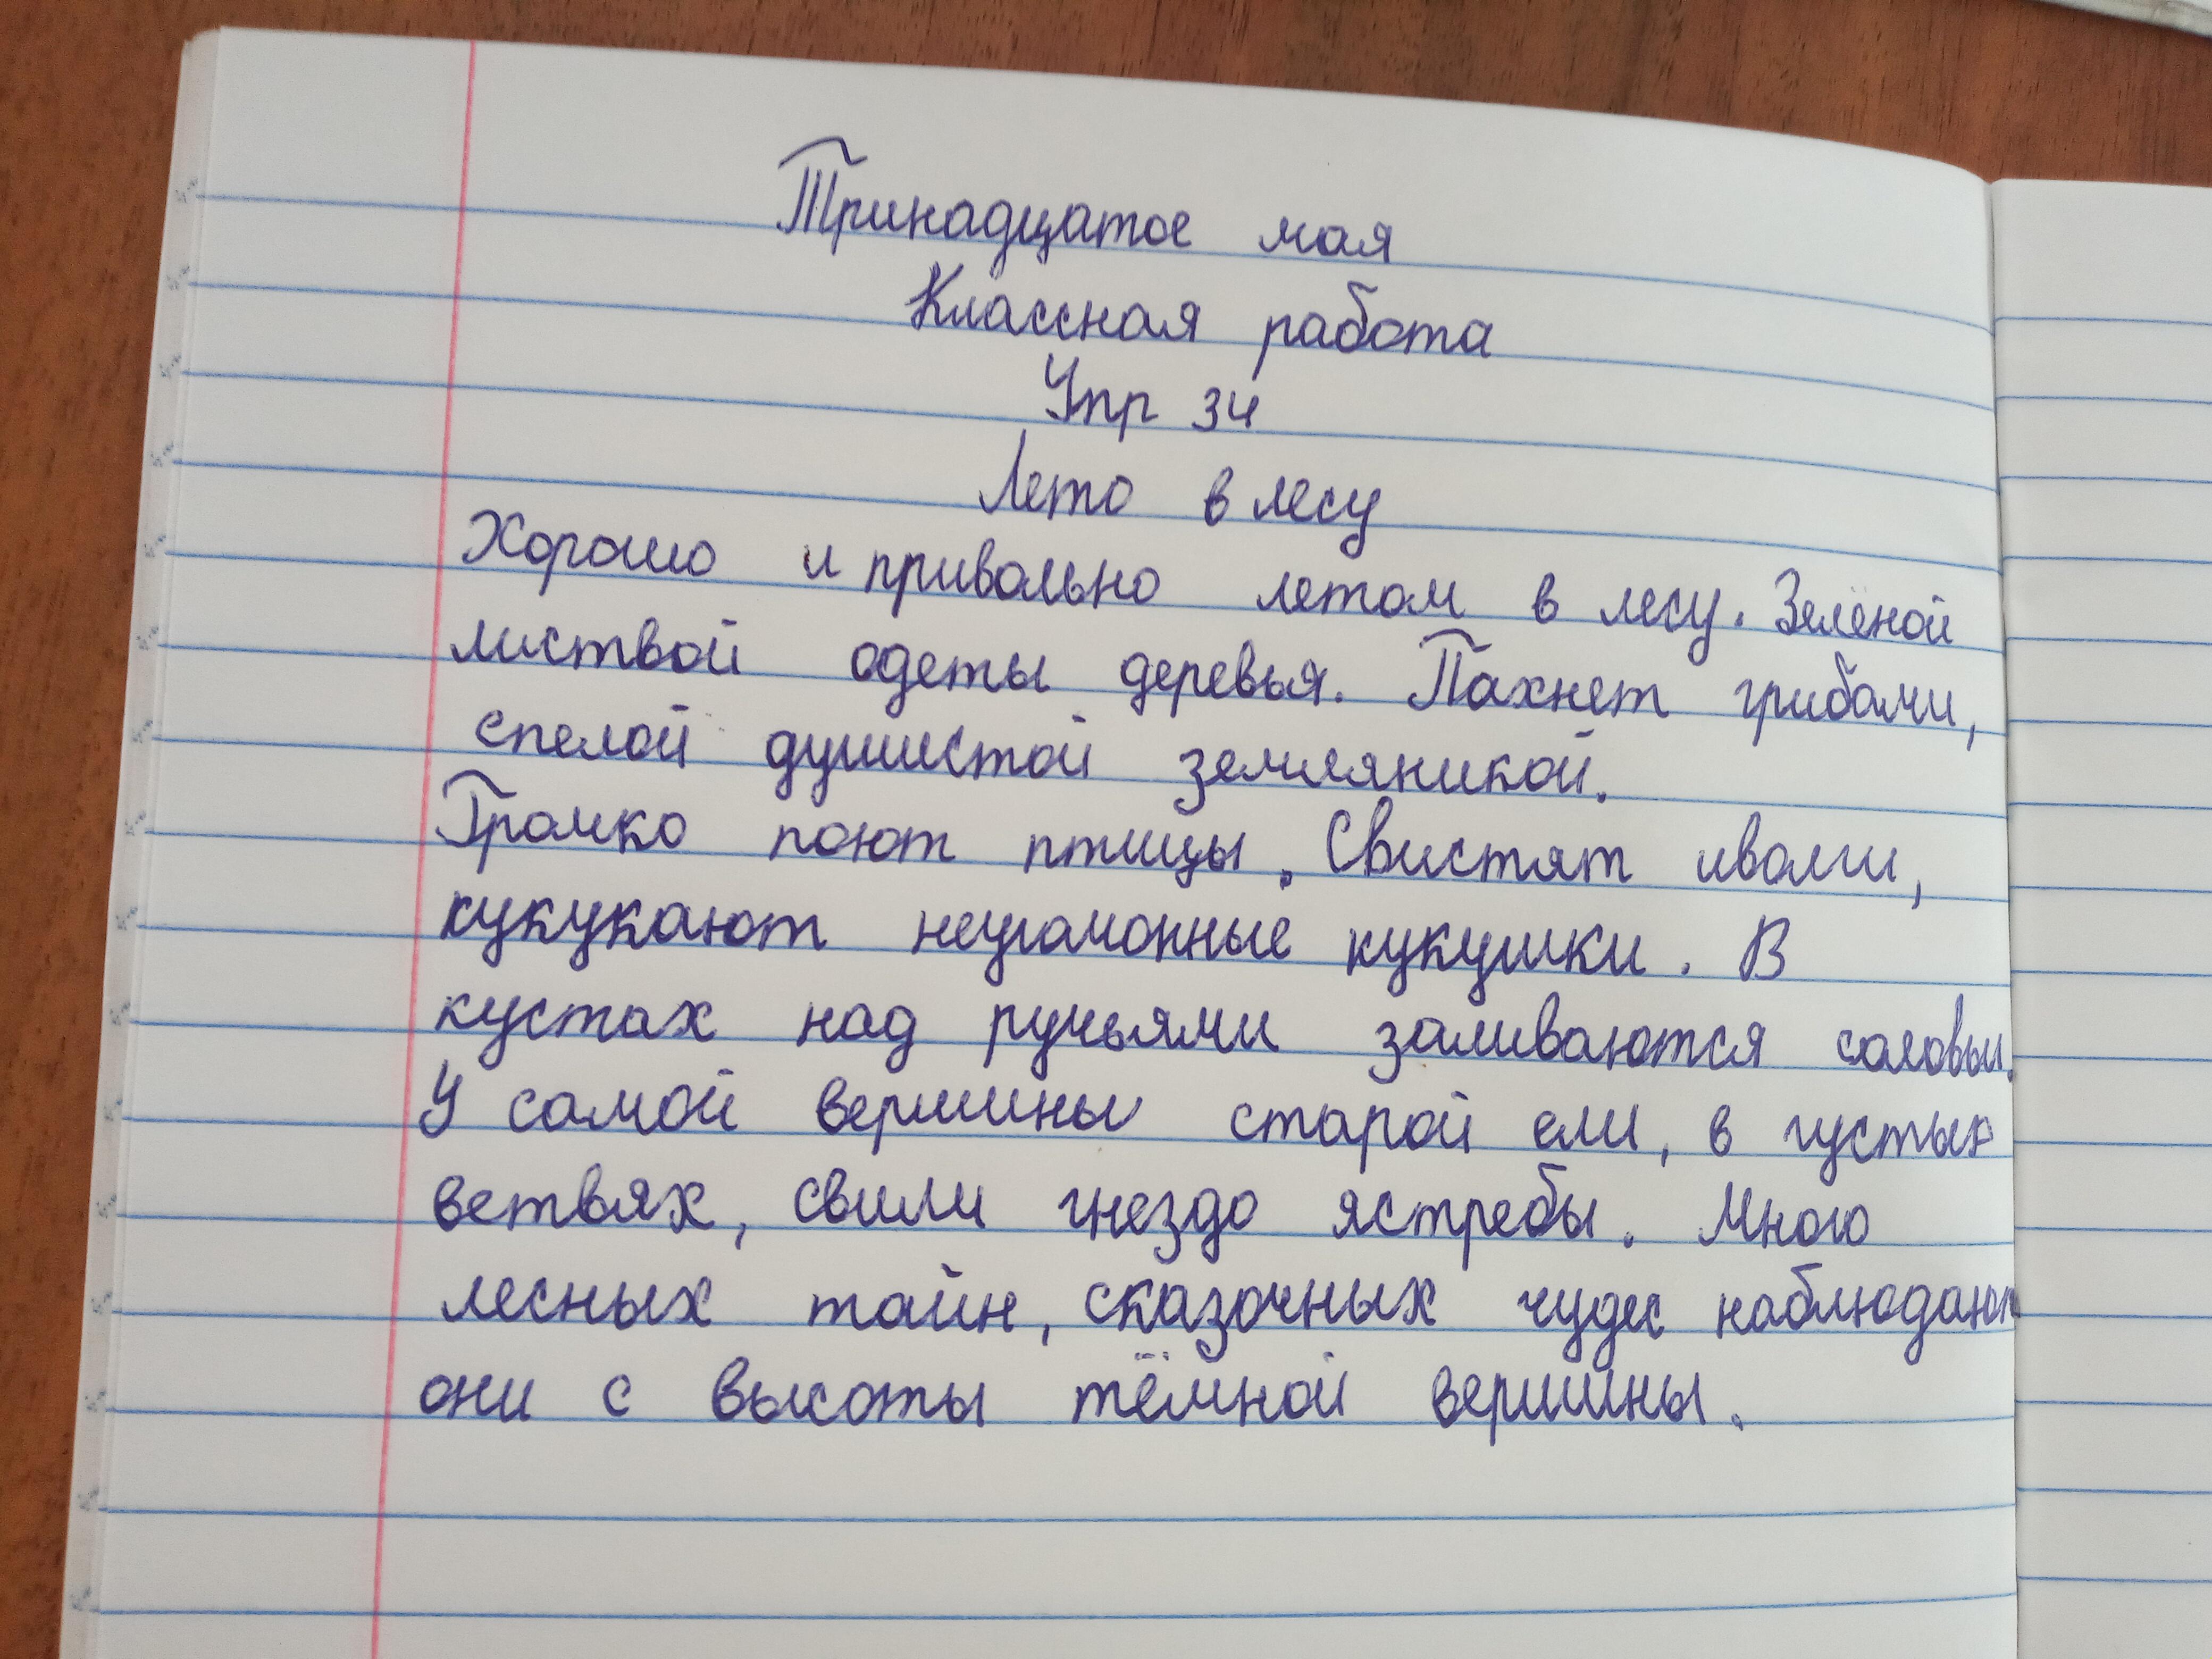 Тринадцатое мая
Классная работа
Упр 34
Лето в лесу
Хорошо и привольно летом в лесу. Зелёной
листвой одеты деревья. Пахнет грибами,
спелой душистой земляникой.
Громко поют птицы. Свистят иволги,
кукукают неугомонные кукушки. В
кустах над ручьями заливаются соловьи.
У самой вершины старой ели, в густых
ветвях, свили гнездо ястребы. Много
лесных тайн, сказочных чудес наблюдают
они с высоты тёмной вершины.